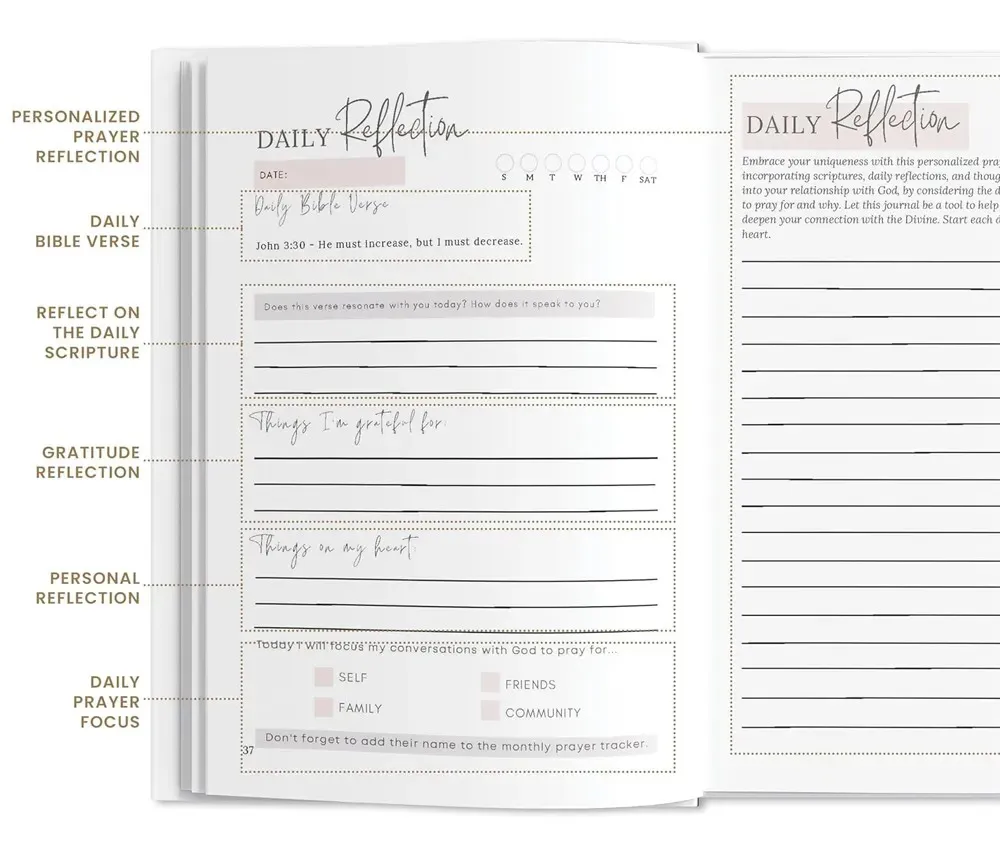 PERSONALIZED
PRAYER
REFLECTION
DAILY
BIBLE VERSE
REFLECT ON
THE DAILY
SCRIPTURE
GRATITUDE
REFLECTION
PERSONAL
REFLECTION
DAILY
PRAYER
FOCUS
DAILY Reflection
DATE:
S M T W TH F SAT
Daily Bible Verse
John 3:30 - He must increase, but I must decrease.
Does this verse resonate with you today? How does it speak to you?
Things I'm grateful for:
Things on my heart:
Today I will focus my conversations with God to pray for...
SELF
FRIENDS
FAMILY
COMMUNITY
Don't forget to add their name to the monthly prayer tracker.
37
DAILY Reflection
Embrace your uniqueness with this personalized
incorporating scriptures, daily reflections, and
into your relationship with God, by considering the
to pray for and why. Let this journal be a tool to help
deepen your connection with the Divine. Start each
heart.